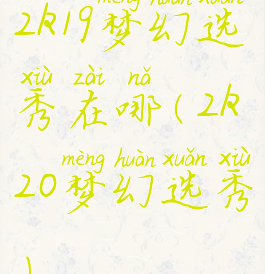 mèng huàn xuǎn
2k19梦幻选
xiù zài nǎ
秀在哪(2k
mèng huàn xuǎn xiù
20梦幻选秀
)